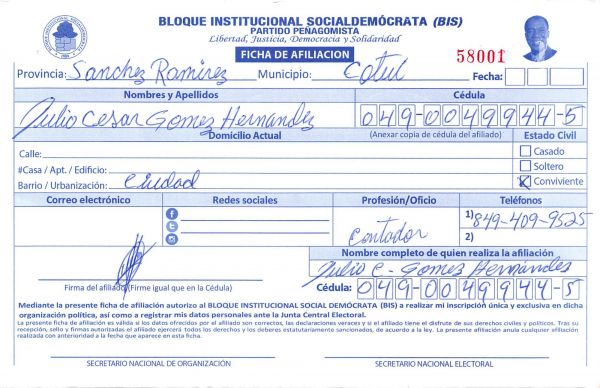 BLOQUE INSTITUCIONAL SOCIALDEMÓCRATA (BIS)
PARTIDO PEÑAGOMISTA
Libertad, Justicia, Democracia y Solidaridad
FICHA DE AFILIACION
58001
Provincia: Sanchez Ramirez Municipio: Cotui Fecha:
Nombres y Apellidos Cédula
Julio Cesar Gomez Hernandez 049-0049944-5
Domicilio Actual (Anexar copia de cédula del afiliado) Estado Civil
Calle: Casado
#Casa / Apt. / Edificio: Soltero
Barrio / Urbanización: Ciudad Conviviente
Correo electrónico Redes sociales Profesión/Oficio Teléfonos
Contador 1) 849-409-9525
2)
Nombre completo de quien realiza la afiliación
Julio C. Gomez Hernández
Firma del afiliado (Firme igual que en la Cédula) Cédula: 049-0049944-5
Mediante la presente ficha de afiliación autorizo al BLOQUE INSTITUCIONAL SOCIAL DEMÓCRATA (BIS) a realizar mi inscripción única y exclusiva en dicha
organización política, así como a registrar mis datos personales ante la Junta Central Electoral.
La presente ficha de afiliación es válida si los datos ofrecidos por el afiliado son correctos, las declaraciones veraces y si el afiliado tiene el disfrute de sus derechos civiles y políticos. Tras su
recepción, sello y firmas autorizadas el afiliado ejercerá todos los derechos y los deberes estatutariamente sancionados, de acuerdo a la ley. La presente afiliación anula cualquier afiliación
realizada con anterioridad a la fecha que aparece en esta ficha.
SECRETARIO NACIONAL DE ORGANIZACIÓN SECRETARIO NACIONAL ELECTORAL